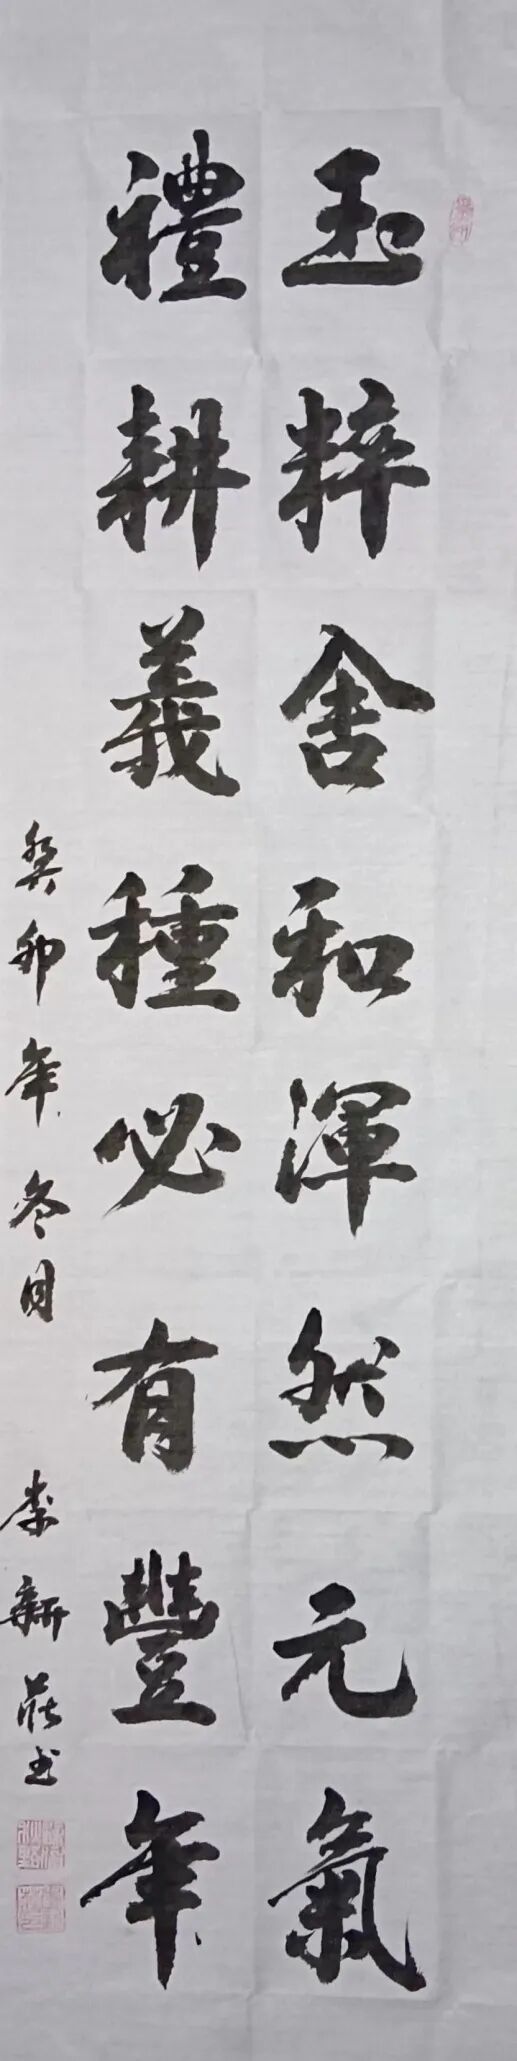 玉粹舍和渾然元氣
禮耕義種必有豐年
癸卯年冬月
李新莊书